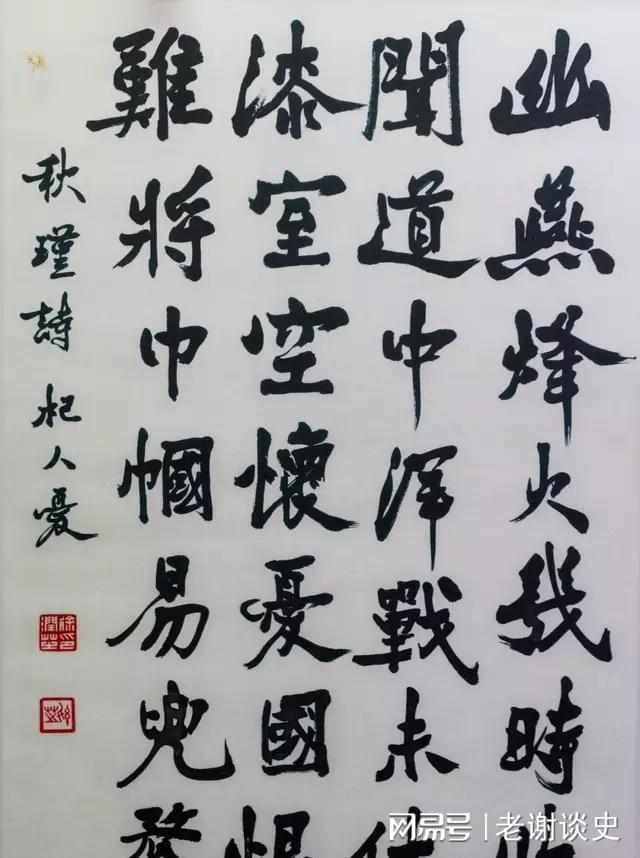 幽燕烽火幾時
聞道中洋戰未
漆室空懷憂國
難將巾幗易兜
秋瑾詩 杞人憂
网易号 | 老谢谈史